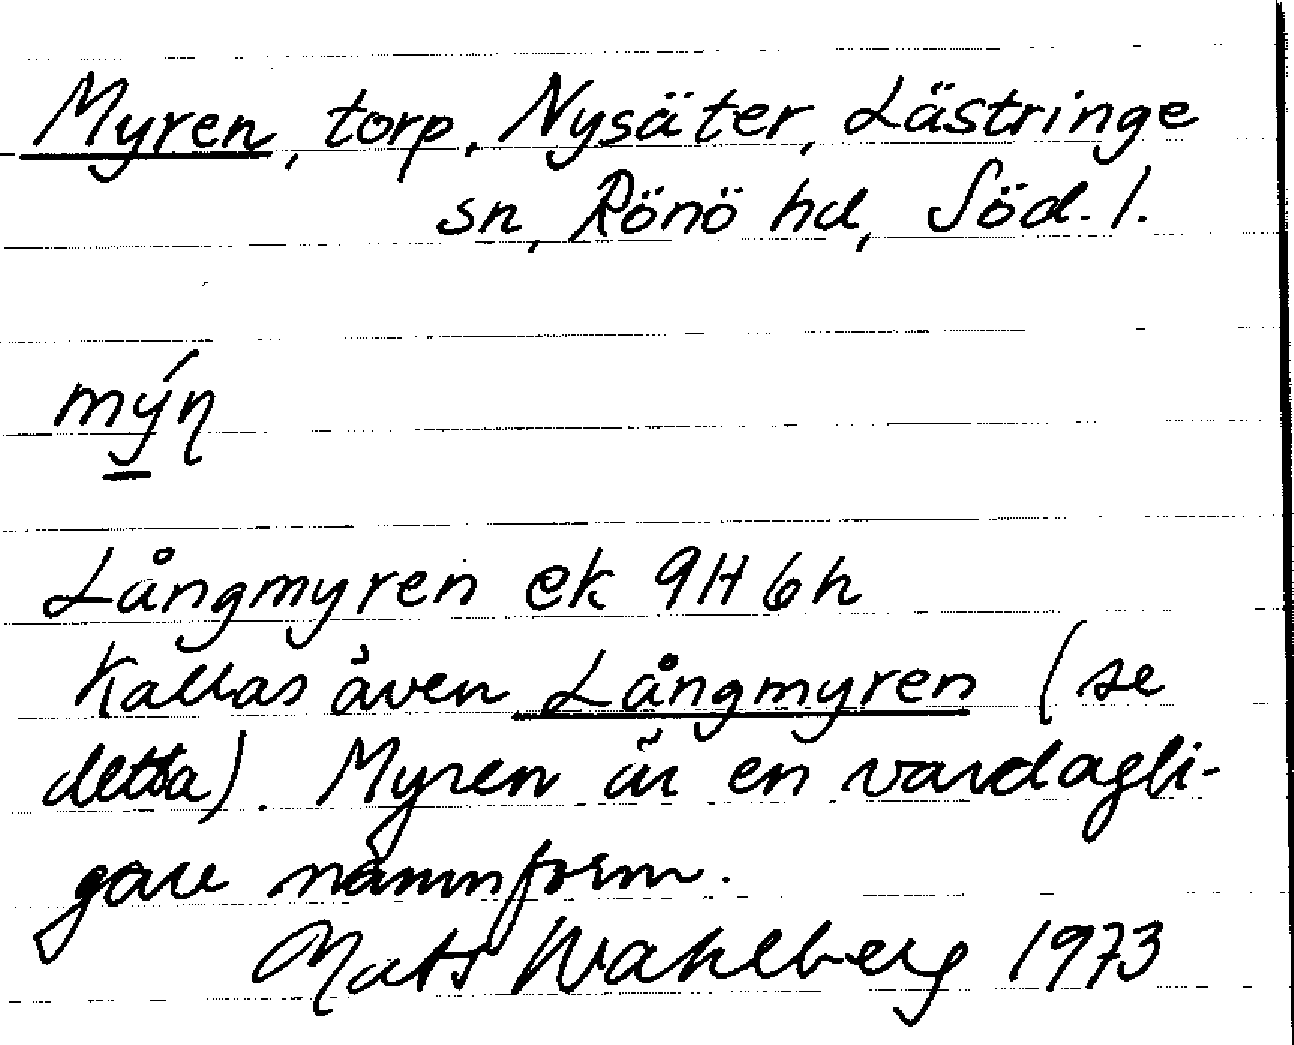 Myren, torp, Nysäter, Lästringe
sn, Rönö hd, Söd. l.
mýn
Långmyren ek 9H6h
Kallas även Långmyren (se
detta). Myren är en vardagli-
gare namnform.
Mats Wahlberg 1973